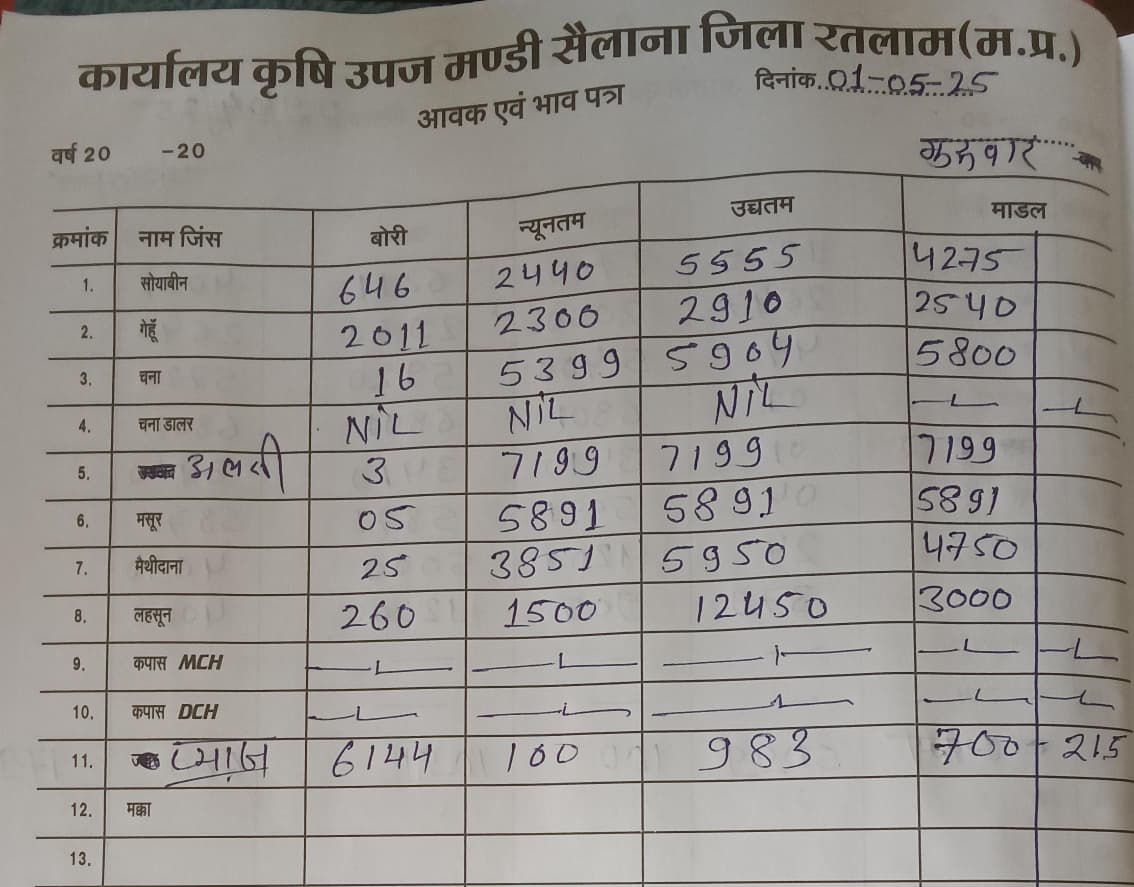 कार्यालय कृषि उपज मण्डी सैलाना जिला रतलाम(म.प्र.)
आवक एवं भाव पत्र
दिनांक..01-05-25
वर्ष 20 -20
गुरुवार
क्रमांक नाम जिंस बोरी न्यूनतम उच्चतम माडल
1. सोयाबीन 646 2440 5555 4275
2. गेहूँ 2011 2300 2910 2540
3. चना 16 5399 5904 5800
4. चना डालर NiL NiL NiL
5. अलसी 3 7199 7199 7199
6. मसूर 05 5891 5891 5891
7. मैथीदाना 25 3851 5950 4750
8. लहसून 260 1500 12450 3000
9. कपास MCH
10. कपास DCH
11. प्याज 6144 100 983 700 - 215
12. मक्का
13.